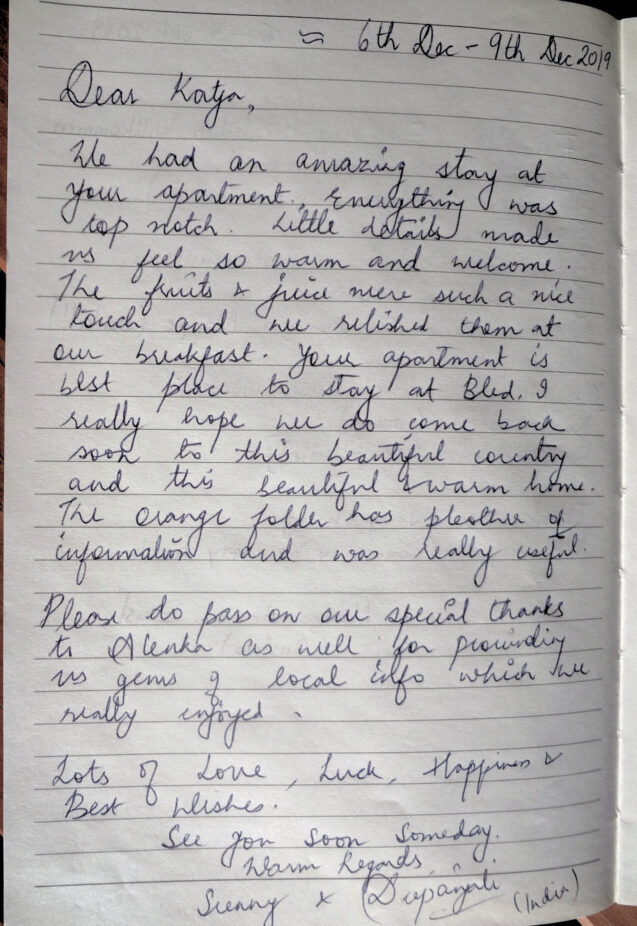 ≈ 6th Dec - 9th Dec 2019
Dear Katja,
We had an amazing stay at
your apartment. Everything was
top notch. Little details made
us feel so warm and welcome.
The fruits & juice were such a nice
touch and we relished them at
our breakfast. Your apartment is
best place to stay at Bled. I
really hope we do come back
soon to this beautiful country
and this beautiful & warm home.
The orange folder has pleothre of
information and was really useful.
Please do pass on our special thanks
to Alenka as well for providing
us gems of local info which we
really enjoyed.
Lots of Love, Luck, Happiness &
Best Wishes.
See you soon someday.
Warm Regards,
Sunny & (Deepanjali (India)